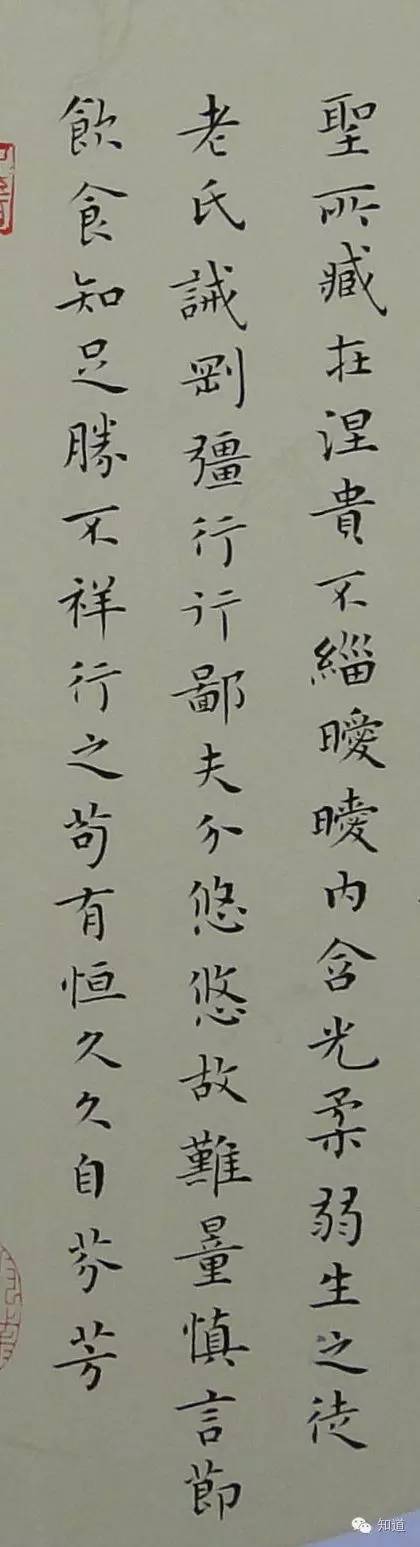 聖所臧在涅貴不緇曖曖内含光柔弱生之徒
老氏誡剛彊行行鄙夫介悠悠故難量慎言節
飲食知足勝不祥行之苟有恒久久自芬芳
知道